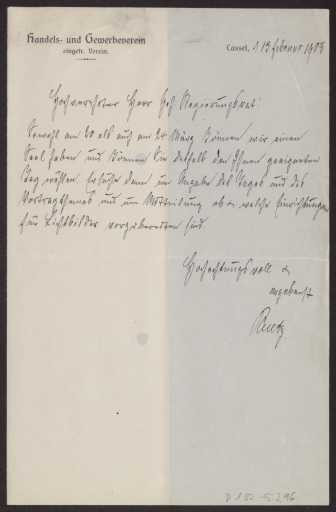 Handels- und Gewerbeverein
eingetr. Verein.
Cassel, 13 Februar 1908
Hochverehrter Herr Geh. Regierungsrat!
Sowohl am 20 als auch am 24 März können wir einen
Saal haben und können Sie deshalb den Ihnen geeigneten
Tag wählen. Ersuche dann um Angabe des Tages und des
Vortragsthemas und um Mitteilung ob & welche Einrichtungen
für Lichtbilder vorzubereiten sind.
Hochachtungsvoll &
ergebenst